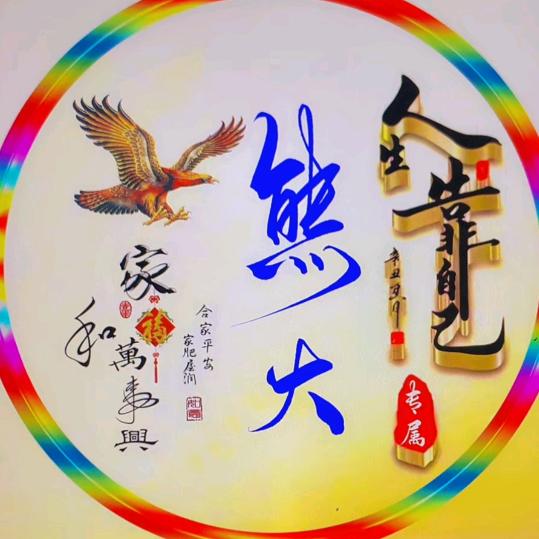 人生靠自己
辛丑夏月
专属
熊大
家和萬事興
福
合家平安
家肥屋润